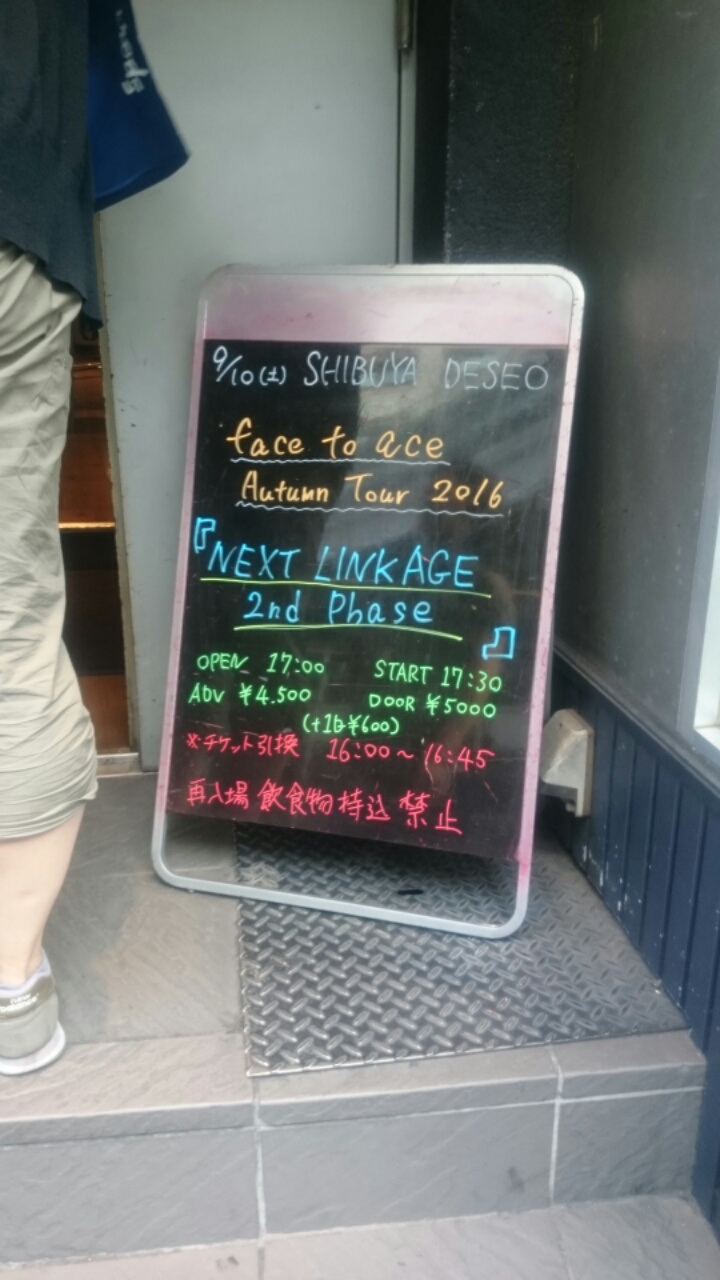 9/10(土) SHIBUYA DESEO
face to ace
Autumn Tour 2016
『NEXT LINKAGE
2nd Phase 』
OPEN 17:00 START 17:30
ADV ¥4.500 DOOR ¥5000
(+1D¥600)
※チケット引換 16:00~16:45
再入場 飲食物持込 禁止